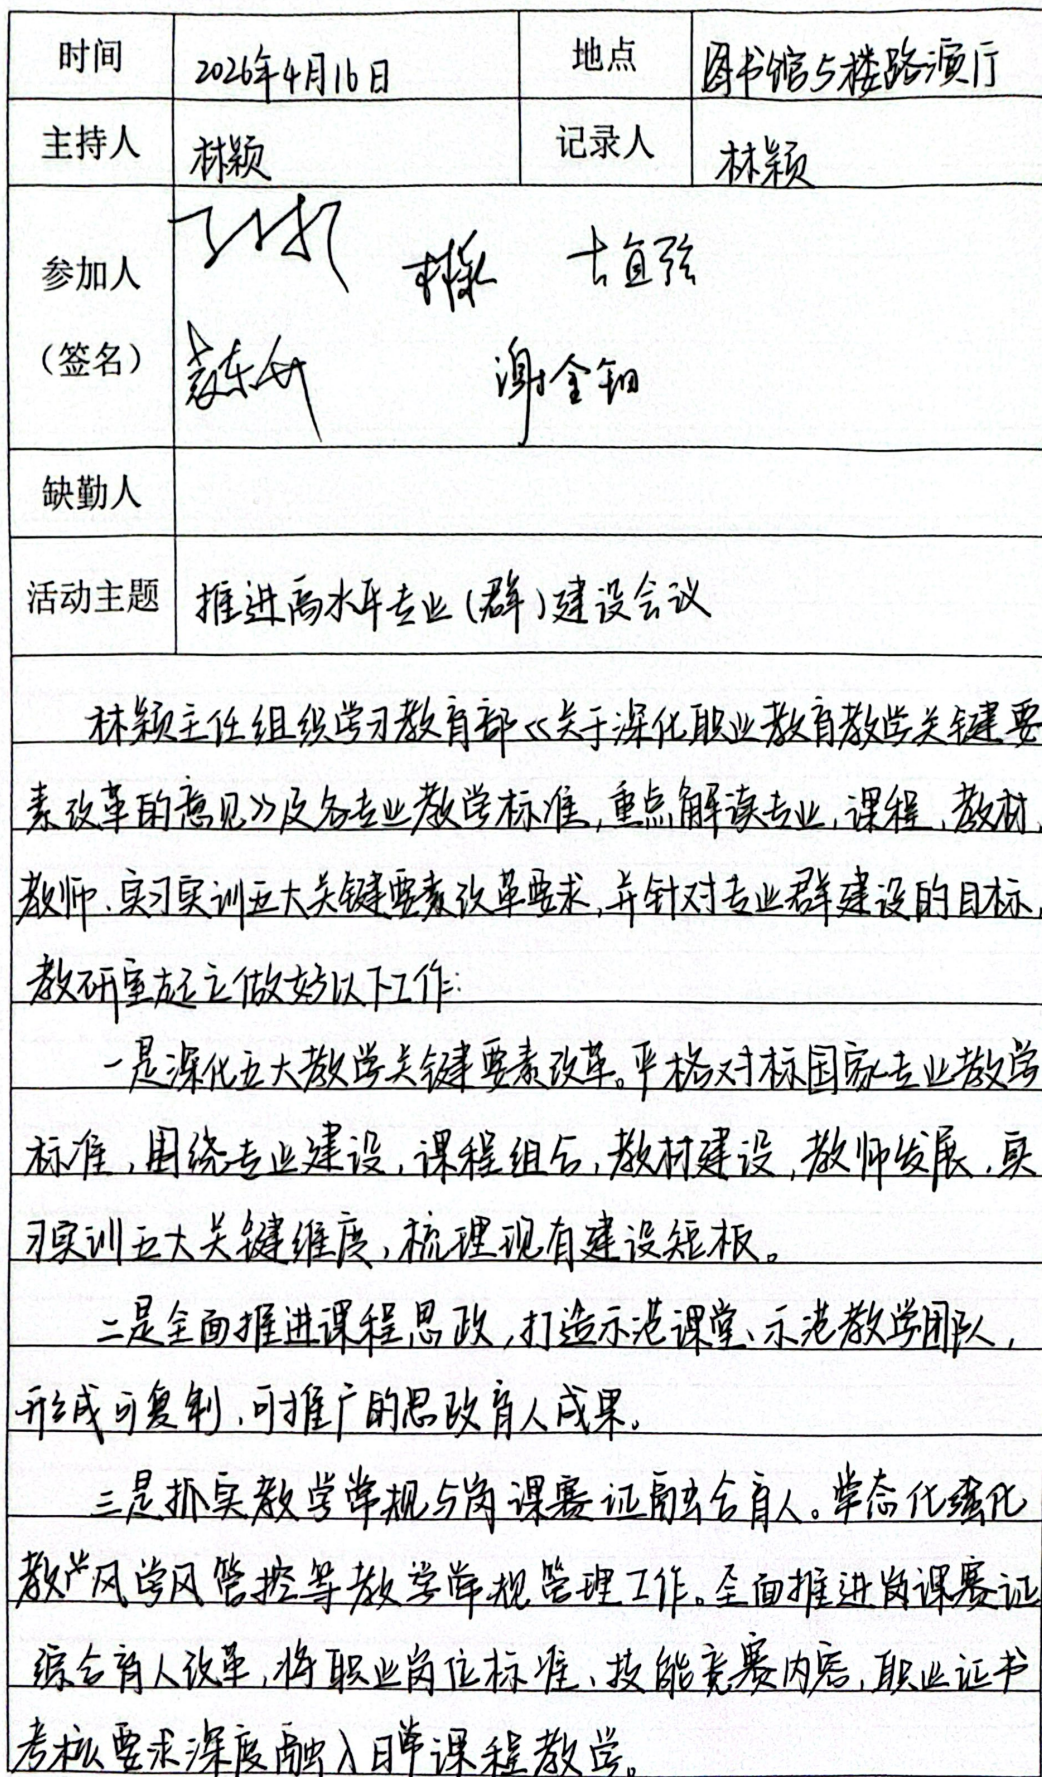 时间 2026年4月16日 地点 图书馆5楼路演厅
主持人 林颖 记录人 林颖
参加人
(签名)
古宜强
谢金钿
缺勤人
活动主题 推进高水平专业(群)建设会议
林颖主任组织学习教育部《关于深化职业教育教学关键要
素改革的意见》及各专业教学标准,重点解读专业,课程,教材,
教师、实习实训五大关键要素改革要求,并针对专业群建设的目标,
教研室应立做好以下工作:
一是深化五大教学关键要素改革。严格对标国家专业教学
标准,围绕专业建设,课程组合,教材建设,教师发展,实
习实训五大关键维度,梳理现有建设短板。
二是全面推进课程思政,打造示范课堂、示范教学团队,
形成可复制、可推广的思政育人成果。
三是抓实教学常规与岗课赛证融合育人。常态化强化
教风学风管控等教学常规管理工作。全面推进岗课赛证
综合育人改革,将职业岗位标准、技能竞赛内容,职业证书
考核要求深度融入日常课程教学。